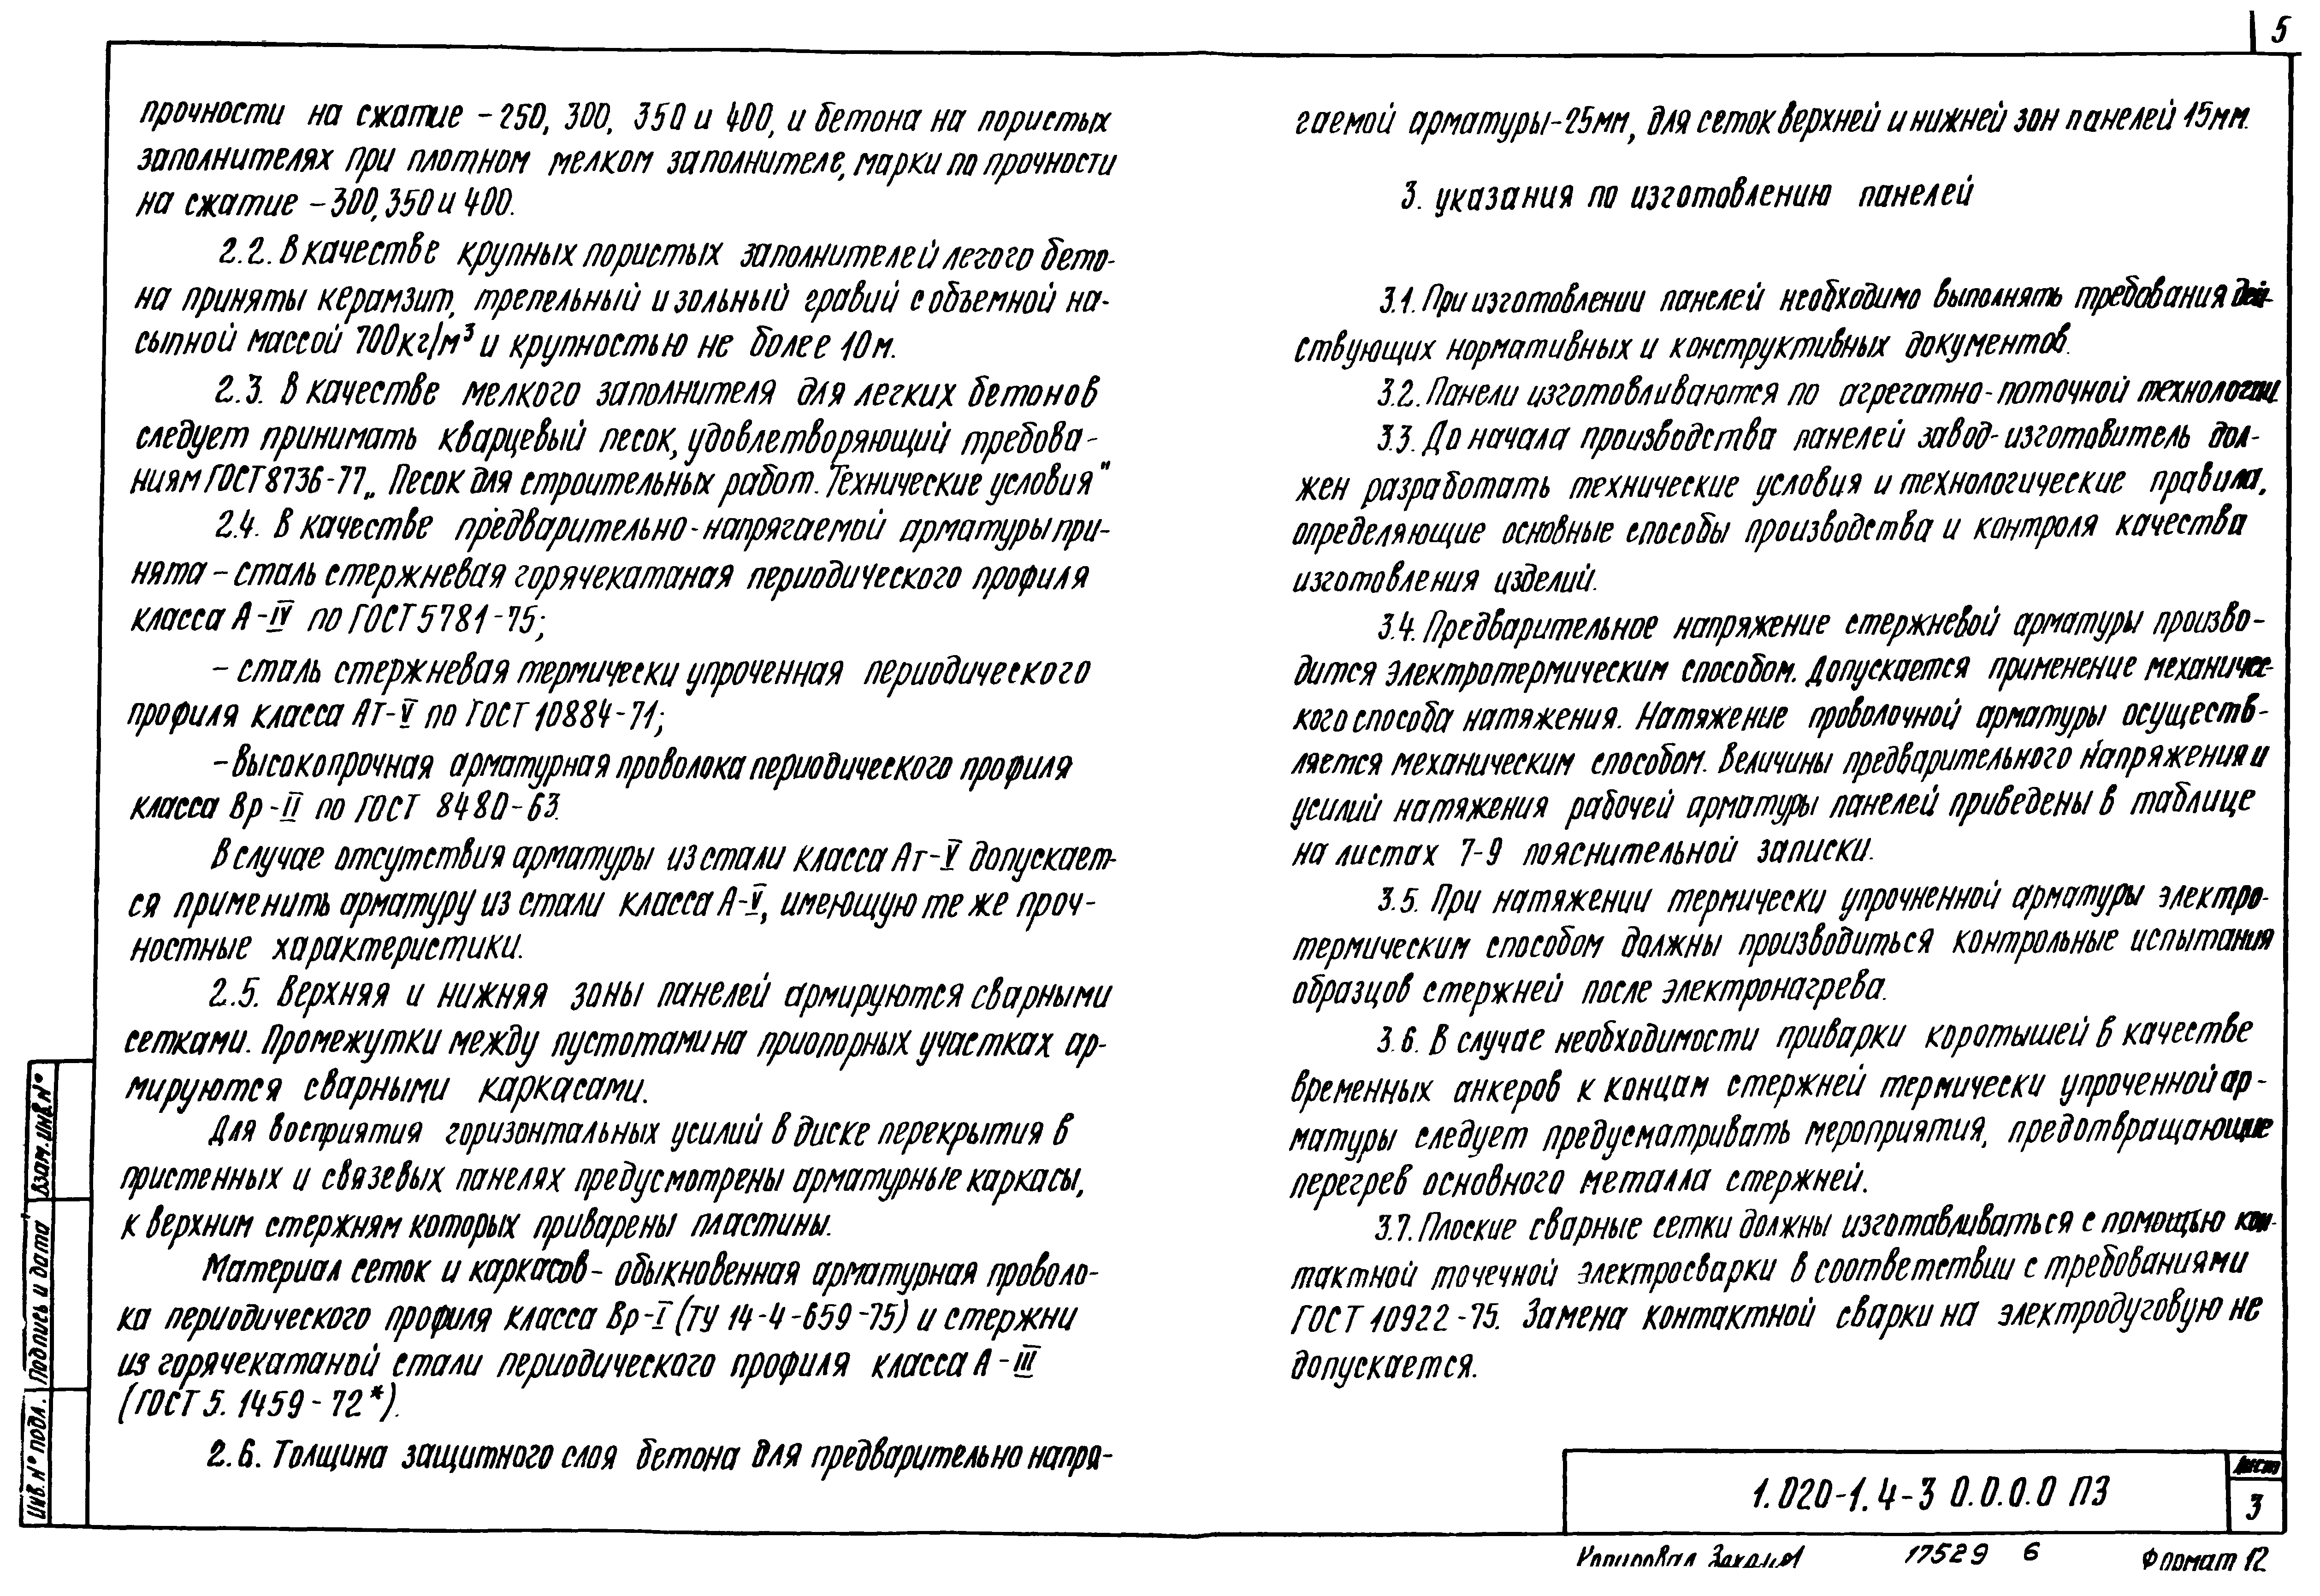 5
прочности на сжатие - 250, 300, 350 и 400, и бетона на пористых
заполнителях при плотном мелком заполнителе, марки по прочности
на сжатие - 300, 350 и 400.
2.2. В качестве крупных пористых заполнителей легого бето-
на приняты керамзит, трепельный и зольный гравий с объемной на-
сыпной массой 700кг/м³ и крупностью не более 10м.
2.3. В качестве мелкого заполнителя для легких бетонов
следует принимать кварцевый песок, удовлетворяющий требова-
ниям ГОСТ 8736-77 „Песок для строительных работ. Технические условия"
2.4. В качестве предварительно-напрягаемой арматуры при-
нята - сталь стержневая горячекатаная периодического профиля
класса А-IV по ГОСТ 5781-75;
- сталь стержневая термически упроченная периодического
профиля класса Ат-V по ГОСТ 10884-71;
- Высокопрочная арматурная проволока периодического профиля
класса Вр-II по ГОСТ 8480-63.
В случае отсутствия арматуры из стали класса Ат-V допускает-
ся применить арматуру из стали класса А-V, имеющую те же проч-
ностные характеристики.
2.5. Верхняя и нижняя зоны панелей армируются сварными
сетками. Промежутки между пустотами на приопорных участках ар-
мируются сварными каркасами.
Для восприятия горизонтальных усилий в диске перекрытия в
пристенных и связевых панелях предусмотрены арматурные каркасы,
к верхним стержням которых приварены пластины.
Материал сеток и каркасов - обыкновенная арматурная проволо-
ка периодического профиля класса Вр-I (ТУ 14-4-659-75) и стержни
из горячекатаной стали периодического профиля класса А-III
(ГОСТ 5.1459-72*).
2.6. Толщина защитного слоя бетона для предварительно напря-
гаемой арматуры-25мм, для сеток верхней и нижней зон панелей 15мм.
3. указания по изготовлению панелей
3.1. При изготовлении панелей необходимо выполнять требования дей-
ствующих нормативных и конструктивных документов.
3.2. Панели изготовливаются по агрегатно-поточной технологии
3.3. До начала производства панелей завод-изготовитель дол-
жен разработать технические условия и технологические правила,
определяющие основные способы производства и контроля качества
изготовления изделий.
3.4. Предварительное напряжение стержневой арматуры произво-
дится электротермическим способом. Допускается применение механичес-
кого способа натяжения. Натяжение проволочной арматуры осуществ-
ляется механическим способом. Величины предварительного напряжения и
усилий натяжения рабочей арматуры панелей приведены в таблице
на листах 7-9 пояснительной записки.
3.5. При натяжении термически упрочненной арматуры электро-
термическим способом должны производиться контрольные испытания
образцов стержней после электронагрева.
3.6. В случае необходимости приварки коротышей в качестве
временных анкеров к концам стержней термически упроченной ар-
матуры следует предусматривать мероприятия, предотвращающие
перегрев основного металла стержней.
3.7. Плоские сварные сетки должны изготавливаться с помощью кон-
тактной точечной электросварки в соответствии с требованиями
ГОСТ 10922-75. Замена контактной сварки на электродуговую не
допускается.
Взам. инв. №
Подпись и дата
Инв. № подл.
1.020-1.4-3 0.0.0.0 ПЗ
Лист
3
Копировал
17529 6
Формат 12